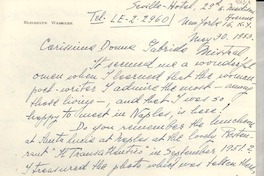 Seville-Hotel, 29th & Madison
Avenue
Tel. LE-2-2960 New York 16, N.Y.
May 30, 1953.
Carissima Donna Gabriela Mistral
It seemed me a wonderful
omen when I learned that the woman
poet-writer I admire the most – among
those living –, and that I was so
happy to meet in Naples, is here.
Do you remember the luncheon
at Santa Lucia at Naples at the lovely Restau-
rant "Il Transatlantico" in September 1951?
I treasured the photo which was taken then,